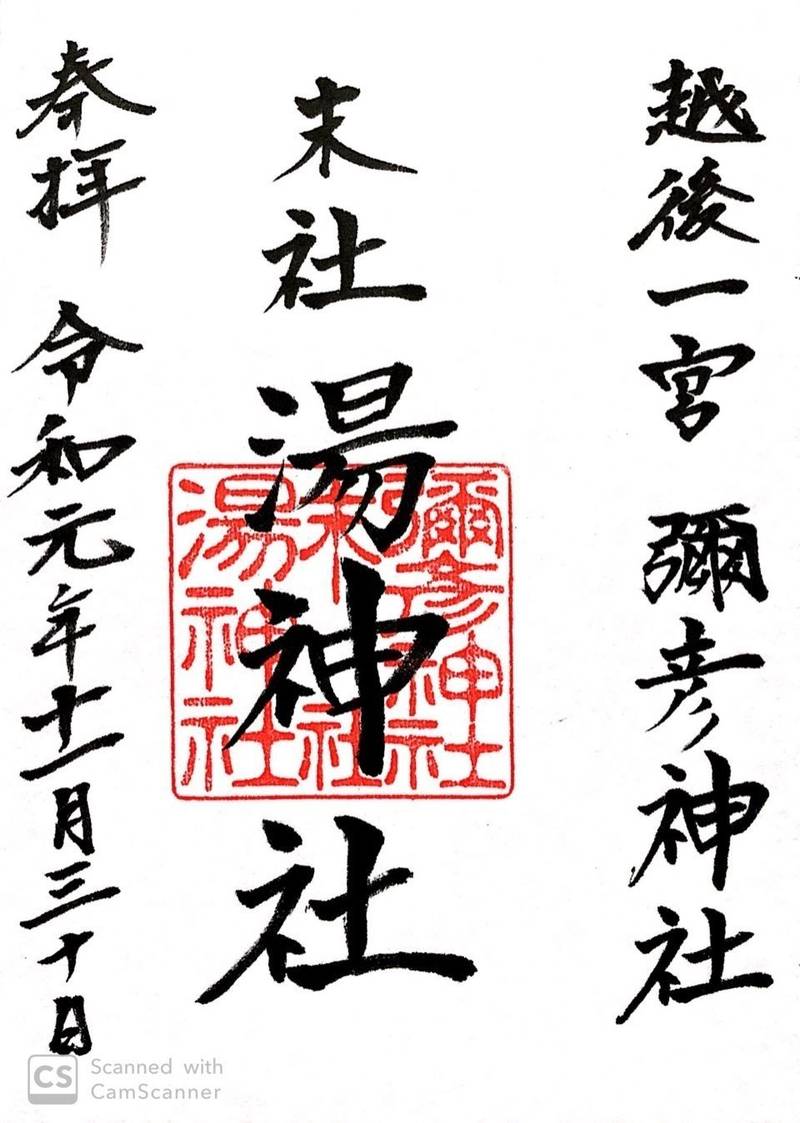 越後一宮 彌彦神社
末社 湯神社
奉拝 令和元年十一月三十日
彌彦神社
末社
湯神社
CS Scanned with
CamScanner